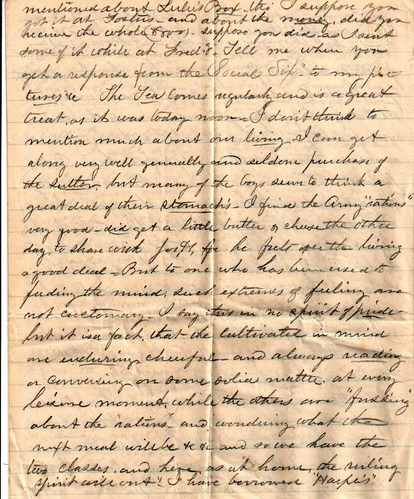 mentioned about Lulu's Box, tho' I suppose you
got it at Fosters - and about the money, did you
receive the whole suppose you did - as I sent
some of it while at Fred'k. Tell me when you
get a response from the "Social Six" to my pic-
tures &c The Tea comes regularly and is a great
treat, as it was today noon - I don't think to
mention much about our living - I can get
along very well generally and seldom purchase of
the sutler, but many of the boys seem to think a
great deal of their stomachs - I find the Army "rations"
very good - did get a little butter & cheese the other
day to share with for he feels the living
a good deal - But to one who has been used to
feeding the mind, such extremes of feeling are
not customary - I say this in no spirit of pride
but it is a fact, that the cultivated in mind
are enduring, cheerful - and always reading
or conversing on some solid matter, at every
leisure moment, while the others are "fussing"
about the rations" and wondering what the
next meal will be &c &c and so we have the
two classes, and here, as at home, the ruling
spirit will out" I have borrowed "Harper's"